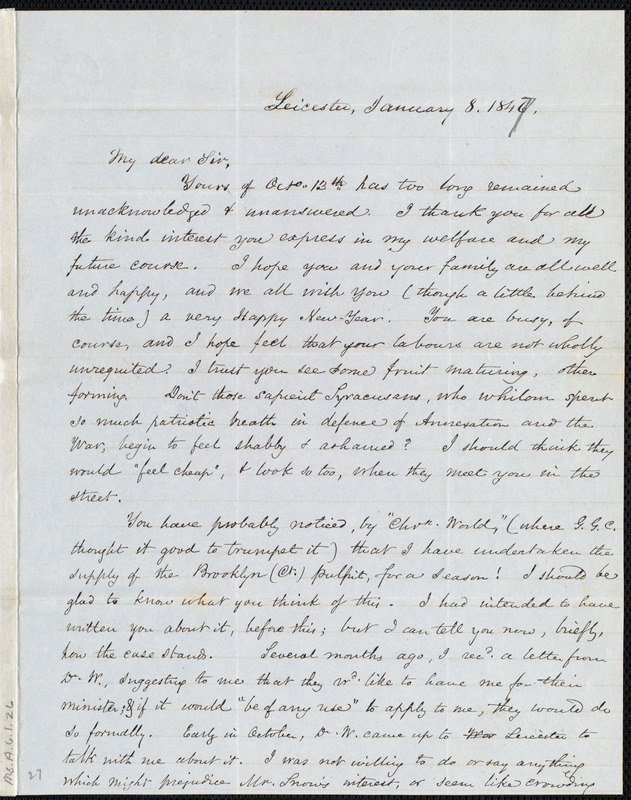 Leicester, January 8. 1847.
My dear Sir,
Yours of Octo. 13th has too long remained
unacknowledged & unanswered. I thank you for all
the kind interest you express in my welfare and my
future course. I hope you and your family are all well
and happy, and we all wish you (though a little behind
the time) a very Happy New-Year. You are busy, of
course, and I hope feel that your labours are not wholly
unrequited? I trust you see some fruit maturing, other
forming. Don't those sapient Syracusans, who whilom spent
so much patriotic breath in defence of Annexation and the
War, begin to feel shabby & ashamed? I should think they
would "feel cheap", & look so too, when they meet you in the
street.
You have probably noticed, by "Chrn. World," (where G. G. C.
thought it good to trumpet it) that I have undertaken the
supply of the Brooklyn (Ct.) pulpit, for a season! I should be
glad to know what you think of this. I had intended to have
written you about it, before this; but I can tell you now, briefly,
how the case stands. Several months ago, I recd. a letter from
Dr. W., suggesting to me that they wd. like to have me for their
minister, & if it would "be of any use" to apply to me, they would do
so formally. Early in October, Dr. W. came up to Leicester to
talk with me about it. I was not willing to do or say anything
which might prejudice Mr. Snow's interest, or seem like crowding
Ms.A.6.1.26
27